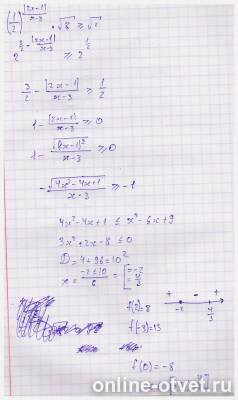 (1/2)^(|2x-1|/(x-3)) · √8 ≥ √2
2^(3/2 - |2x-1|/(x-3)) ≥ 2^(1/2)
3/2 - |2x-1|/(x-3) ≥ 1/2
1 - |2x-1|/(x-3) ≥ 0
1 - √(2x-1)²/(x-3) ≥ 0
-√(4x²-4x+1)/(x-3) ≥ -1
4x²-4x+1 ≤ x²-6x+9
3x²+2x-8 ≤ 0
D = 4+96=10²
x = (-2±10)/6 = [=-2
= 4/3
+ - +
-2 4/3
f(2)=8
f(-3)=13
f(0)=-8
online-otvet.ru